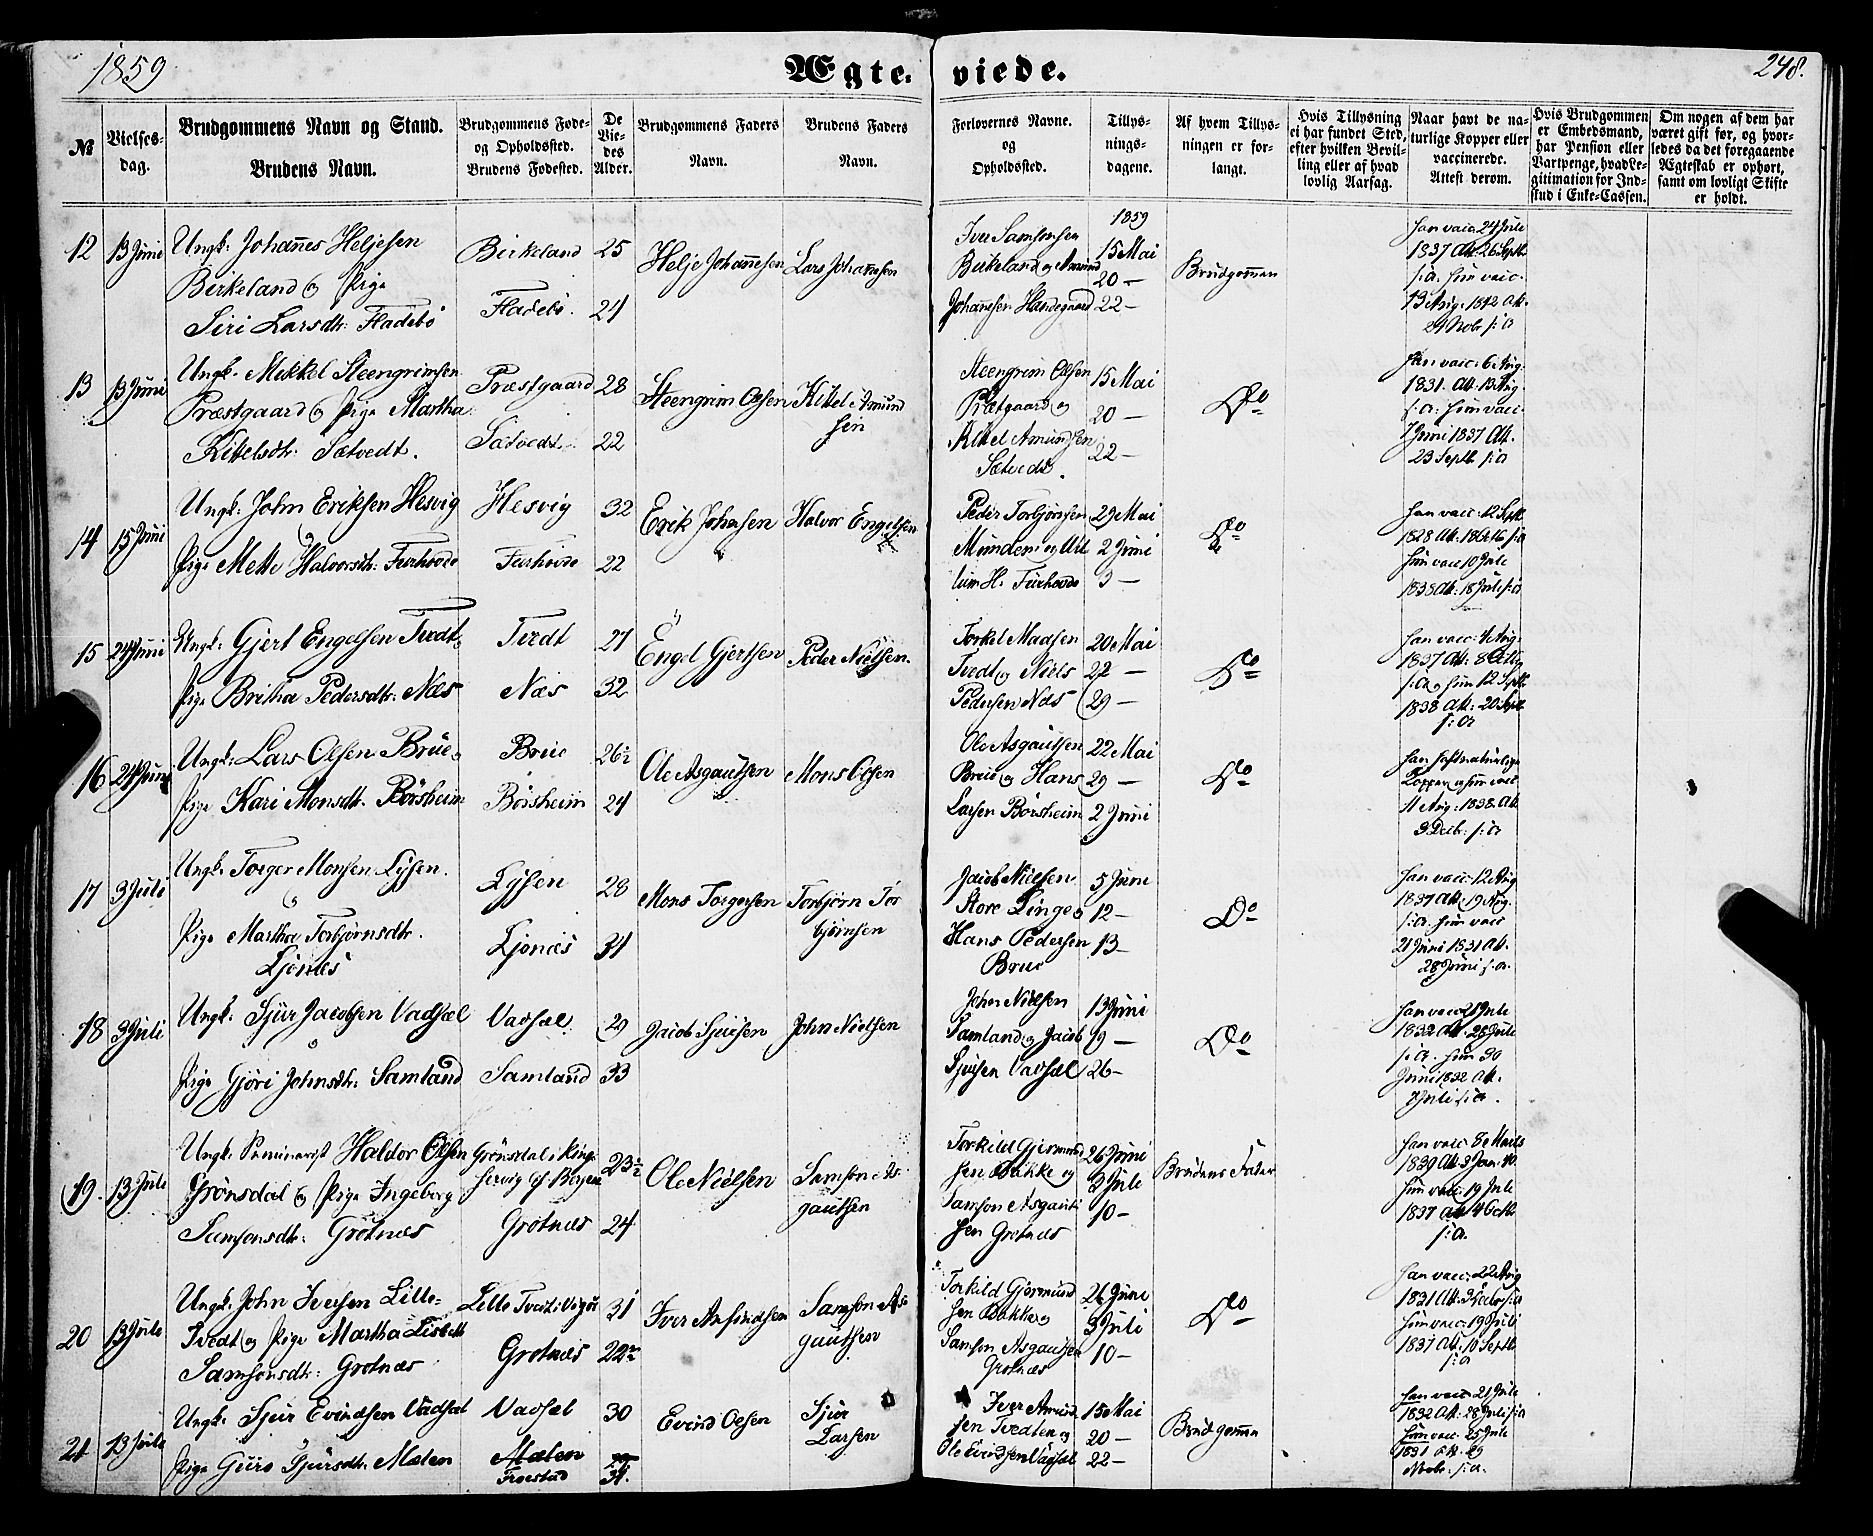 1859
Ægte-viede.
248.
№
Vielses-dag.
Brudgommens Navn og Stand.
Brudens Navn.
Brudgommens Føde- og Opholdssted.
Brudens Fødested.
De Vie-des Alder.
Brudgommens Faders Navn.
Brudens Faders Navn.
Forlovernes Navne. og Opholdssted.
Tillys-nings-dagene.
Af hvem Tillys-ningen er for-langt.
Hvis Tillysning ei har fundet Sted, efter hvilken Bevil-ling eller af hvad lovlig Aarsag.
Naar havt de na-turlige Kopper eller vaccinerede. Attest derom.
Hvis Brudgommen er Embedsmand, har Pension eller Vartpenge, hvad Le-gitimation for Ind-skud i Enke-Cassen.
Om nogen af dem har været gift før, og hvor-ledes da det foregaaende Ægteskab er ophørt, samt om lovligt Skifte er holdt.
12 13 Juni
Ungk: Johannes Heljesen
Birkeland og Pige
Siri Larsdtr: Fladebö
Birkeland 25
Fladebö. 24
Helje Johannesen
Lars Johannesen
Iver Samsonsen
Birkeland og Amund
Johannesen
1859
15 Mai
20 —
22 —
Brudgommen
han vacc. 24 Juli
1837 Att. 26 Septb.
s: a. hun vacc.
13 Aug. 1842 Att.
24 Nobr s: a
13 13 Juni
Ungk. Mikkel Steengrimsen
Præstgaard og Pige Martha
Kittelsdtr. Sætvedt.
Præstgaard 28
Sætvedt. 22
Steengrim Olsen
Kittel Amundsen
Steengrim Olsen
Præstgaard og
Kittel Amundsen
Sætvedt.
15 Mai
20 —
22 —
Do
han vacc. 6 Aug.
1831. Att. 13 Aug.
s: a. hun vacc.
7 Juni 1837 Att.
23 Septb s: a
14 15 Juni
Ungk: John Eriksen Hesvig
og
Pige Mette Halvorsdtr: Furhovde
Hesvig 32
Furhovde 22
Erik Johnsen
Halvor Engelsen
Peder Torbjörnsen
Munden og
H. Furhovde
29 Mai
2 Juni
3 —
Do
han vacc. 12 Septb
1828 Att. 18 s: a
hun vacc 10 Juli
1838 Att. 18 Juli s: a
15 24 Juni
Ungk: Gjert Engelsen Tvedt og
Pige Britha Pedersdtr: Næs
Tvedt 27
Næs 32
Engel Gjertsen
Peder Nielsen.
Torkel Madsen
Tvedt og Niels
Pedersen Næs
20 Mai
22 —
29 —
Do
han vacc: 1 Aug.
1837 Att: 8
s: a og hun 12 Septb
1838 Att: 20 Septb
s: a
16 24 Juni
Ungk: Lars Olsen Brue og
Pige Kari Monsdtr. Börsheim
Brue 26½
Börsheim 24
Ole Asgautsen
Mons Olsen
Ole Asgautsen
Brue og Hans
Larsen Börsheim
22 Mai
29 —
2 Juni
Do
han havt naturlige
Kopper og hun vacc
11 Aug: 1838 Att.
3 Decb: s: a
17 3 Juli
Ungk. Torger Monsen Lysen.
og
Pige Martha Torbjörnsdtr.
Ljonæs
Lysen 28
Ljonæs 31
Mons Torgersen
Torbjörn Torbjörnsen
Jacob Nielsen
Store Linge og
Hans Pedersen
Brue
5 Juni
12 —
13 —
Do
han vacc. 12 Aug
1837 Att. 19 Aug.
s: a. hun vacc
21 Juni 1831 Att.
28 Juni s: a.
18 3 Juli
Ungk. Sjur Jacobsen Vadsæl
og
Pige Gjöri Johnsdtr. Samland
Vadsæl 29
Samland 33
Jacob Sjursen
John Nielsen
John Nielsen
Samland og Jacob
Sjursen Vadsæl
13 Juni
19 —
26 —
Do
han vacc 21 Juli
1832 Att. 28 Juli
s: a. hun 30
Juni 1832 Att.
7 Juli s: a.
19. 13 Juli
Ungk. Seminarist Haldor Olsen
Grönsdal og Pige Ingeborg
Samsonsdtr: Grotnæs
Grönsdal i
af Bergen 23½
Grotnæs 24
Ole Nielsen
Samson Asgautsen
Torkild Gjermundsen
Bakke og
Samson Asgautsen
Grotnæs
26 Juni
3 Juli
10 —
Brudens Fader
han vacc. 8 Marts
1839 Att. 3 Jan. 40.
hun vacc. 19 Juli
1837 Att 4 Octb
s: a.
20 13 Juli
Ungk. John Iversen Lille-
Tvedt og Pige Martha Lisbeth
Samsonsdtr: Grotnæs
Lille Tvedt i Vigör 31
Grotnæs 22½
Iver Anfindsen
Samson Asgautsen
Torkild Gjermundsen
Bakke og
Samson Asgautsen
Grotnæs
26 Juni
3 Juli
10 —
Do
han vacc: 22 Aug
1831 Att. s: a
hun vacc. 19 Juli
1837 Att. 10 Septb
s: a
21 13 Juli
Ungk. Sjur Evindsen Vadsæl
og
Pige Guro Sjursdtr. Mælen
Vadsæl 30
Mælen
Froestad 31.
Evind Olsen
Sjur Larsen
Iver Amundsen
Tvedten og
Ole Evindsen Vadsæl
15 Mai
20 —
22 —
Brudgommen
han vacc 21 Juli
1832 Att. 28 Juli s: a
hun vacc. 25 Juli
1831 Att. 29
Nobr. s: a.